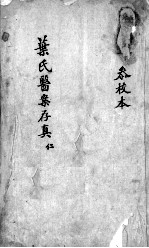 叅校本
葉氏醫案存真 仁